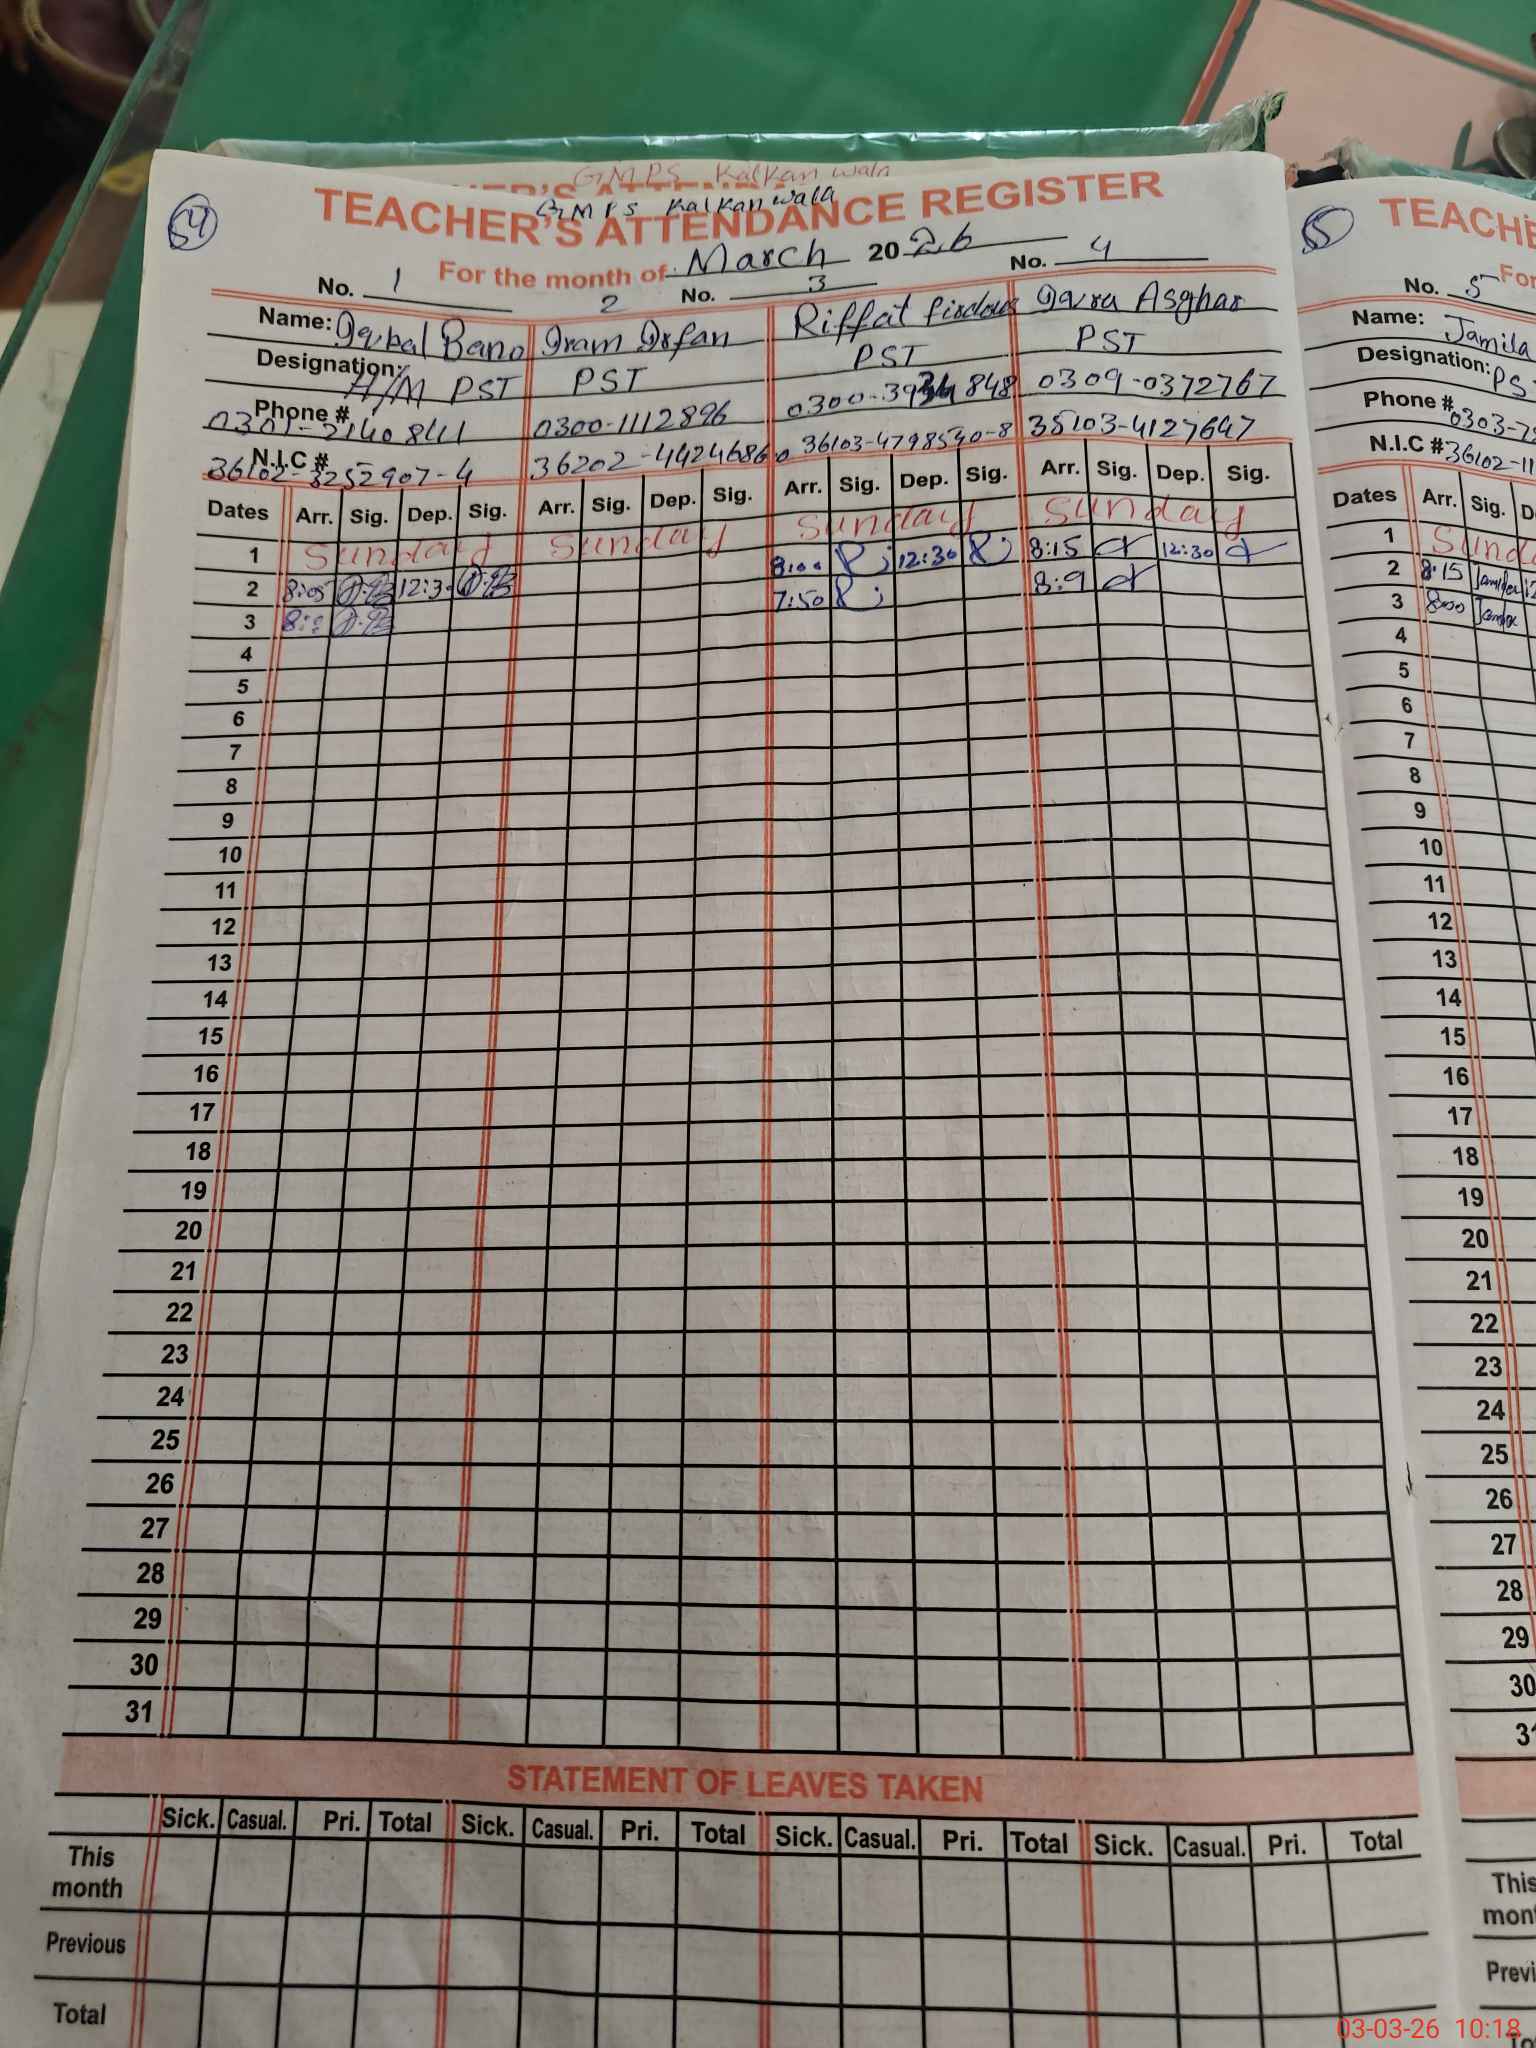 GMPS Kalkan wala
GMPS Kalkanwala
54
TEACHER'S ATTENDANCE REGISTER
For the month of March 2026
No. 1 2 No. 3 No. 4
Name: Iqbal Bano Iram Irfan Riffat firdous Iqra Asghar
Designation: H/M PST PST PST PST
Phone # 0300-1112896 0309-0372767
N.I.C # 36102-3252907-4 36202-4424686 36103-4798590-8 35103-4127647
Dates Arr. Sig. Dep. Sig. Arr. Sig. Dep. Sig. Arr. Sig. Dep. Sig. Arr. Sig. Dep. Sig.
1 Sunday Sunday Sunday Sunday
2 8:05 12:30 8:00 12:30 8:15 12:30
3 7:50 8:9
4
5
6
7
8
9
10
11
12
13
14
15
16
17
18
19
20
21
22
23
24
25
26
27
28
29
30
31
STATEMENT OF LEAVES TAKEN
Sick. Casual. Pri. Total Sick. Casual. Pri. Total Sick. Casual. Pri. Total Sick. Casual. Pri. Total
This
month
Previous
Total
5
TEACHE
For
No. 5
Name: Jamila
Designation: PS
Phone # 0303-7
N.I.C # 36102-11
Dates Arr. Sig. D
1 Sund
2 8:15 Jamila
3 8:00
4
5
6
7
8
9
10
11
12
13
14
15
16
17
18
19
20
21
22
23
24
25
26
27
28
29
30
31
This
mont
Previ
To
03-03-26 10:18